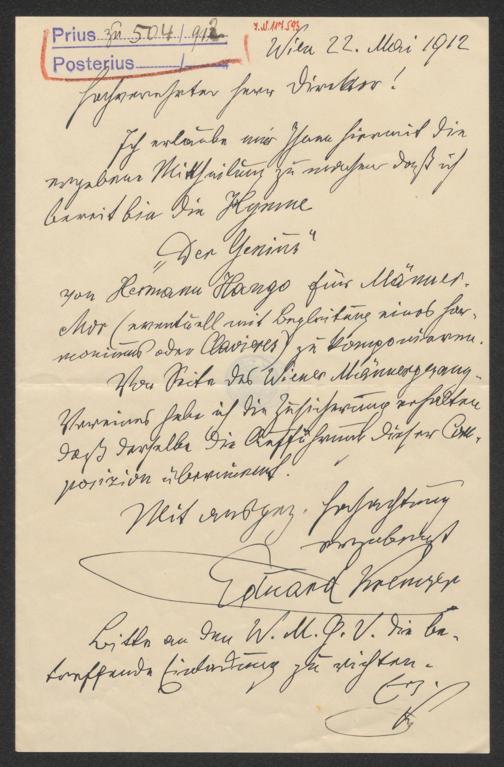 Prius zu 504/912
Posterius /
J.N. 117.593
Wien 22. Mai 1912
Hochverehrter Herr Direktor!
Ich erlaube mir Ihnen hiermit die
ergebene Mittheilung zu machen daß ich
bereit bin die Hymne
„Der Genius“
von Hermann Hango für Männer-
chor (eventuell mit Begleitung eines Har-
moniums oder Clavieres) zu komponieren.
Von Seite des Wiener Männergesang-
Vereines habe ich die Zusicherung erhalten
daß derselbe die Aufführung dieser Com-
position übernimmt.
Mit ausgez. Hochachtung
ergebenst
Eduard Kremser
Bitte an den W. M. G. V. die be-
treffende Einladung zu richten.